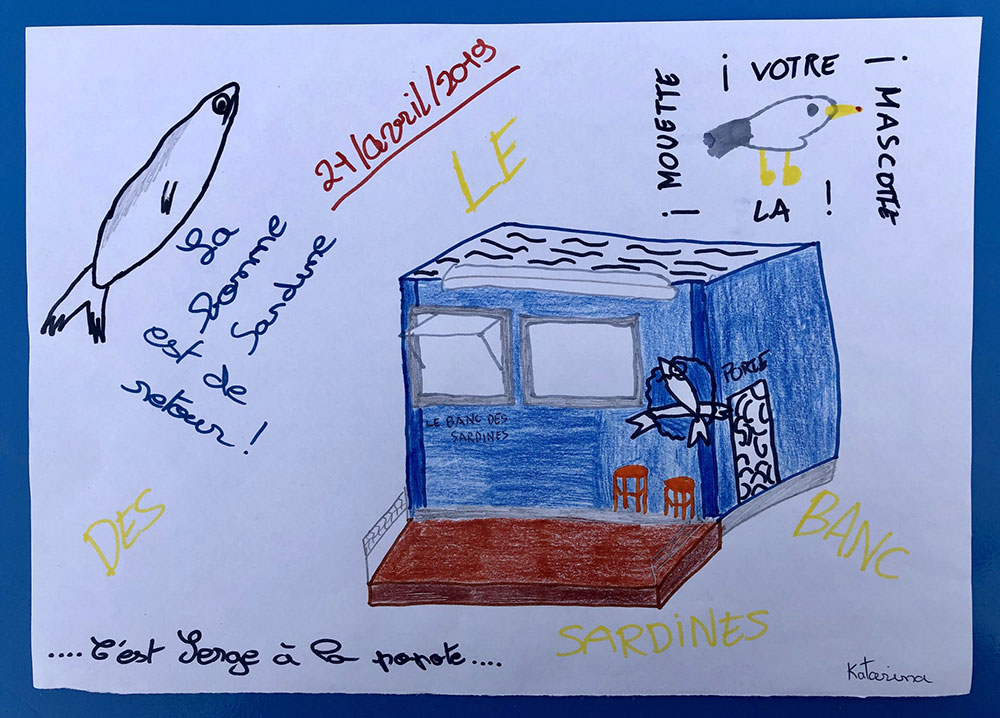 21/avril/2019
LE
¡ VOTRE
¡ MASCOTTE
¡ MOUETTE
LA !
La
bonne
sardine
est de
retour !
PORTE
LE BANC DES
SARDINES
DES
BANC
SARDiNES
....C'est Serge à la popote....
Katarina